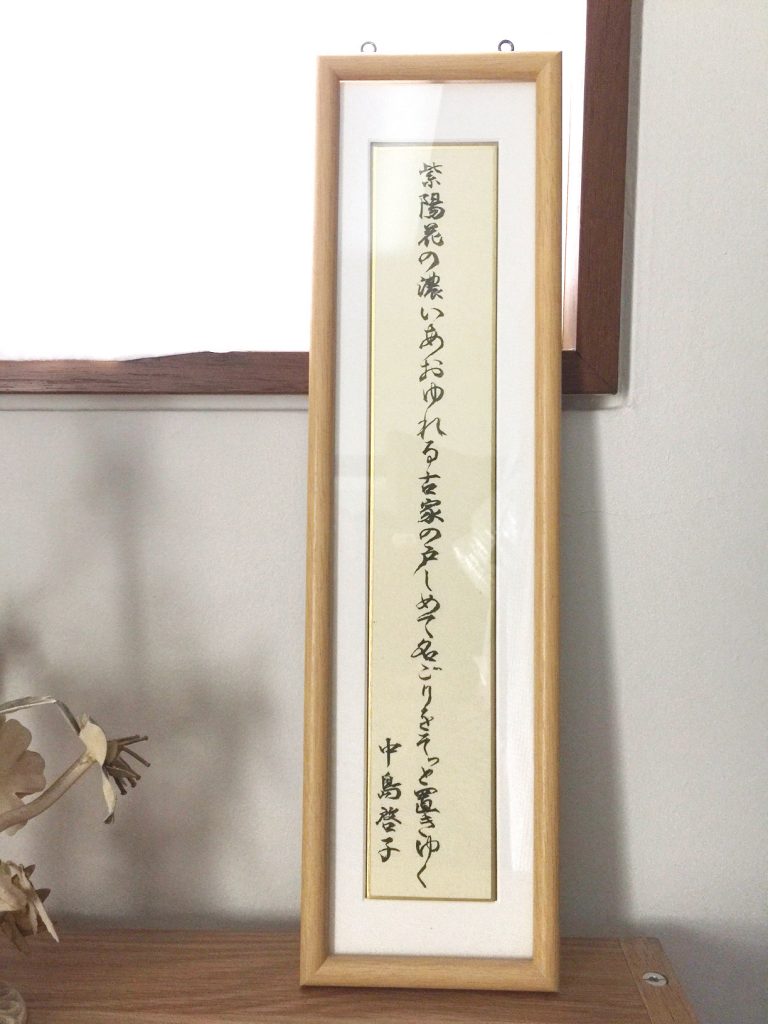 紫陽花の濃いあおゆれる古家の戸しめて名ごりをそっと置きゆく
中島啓子